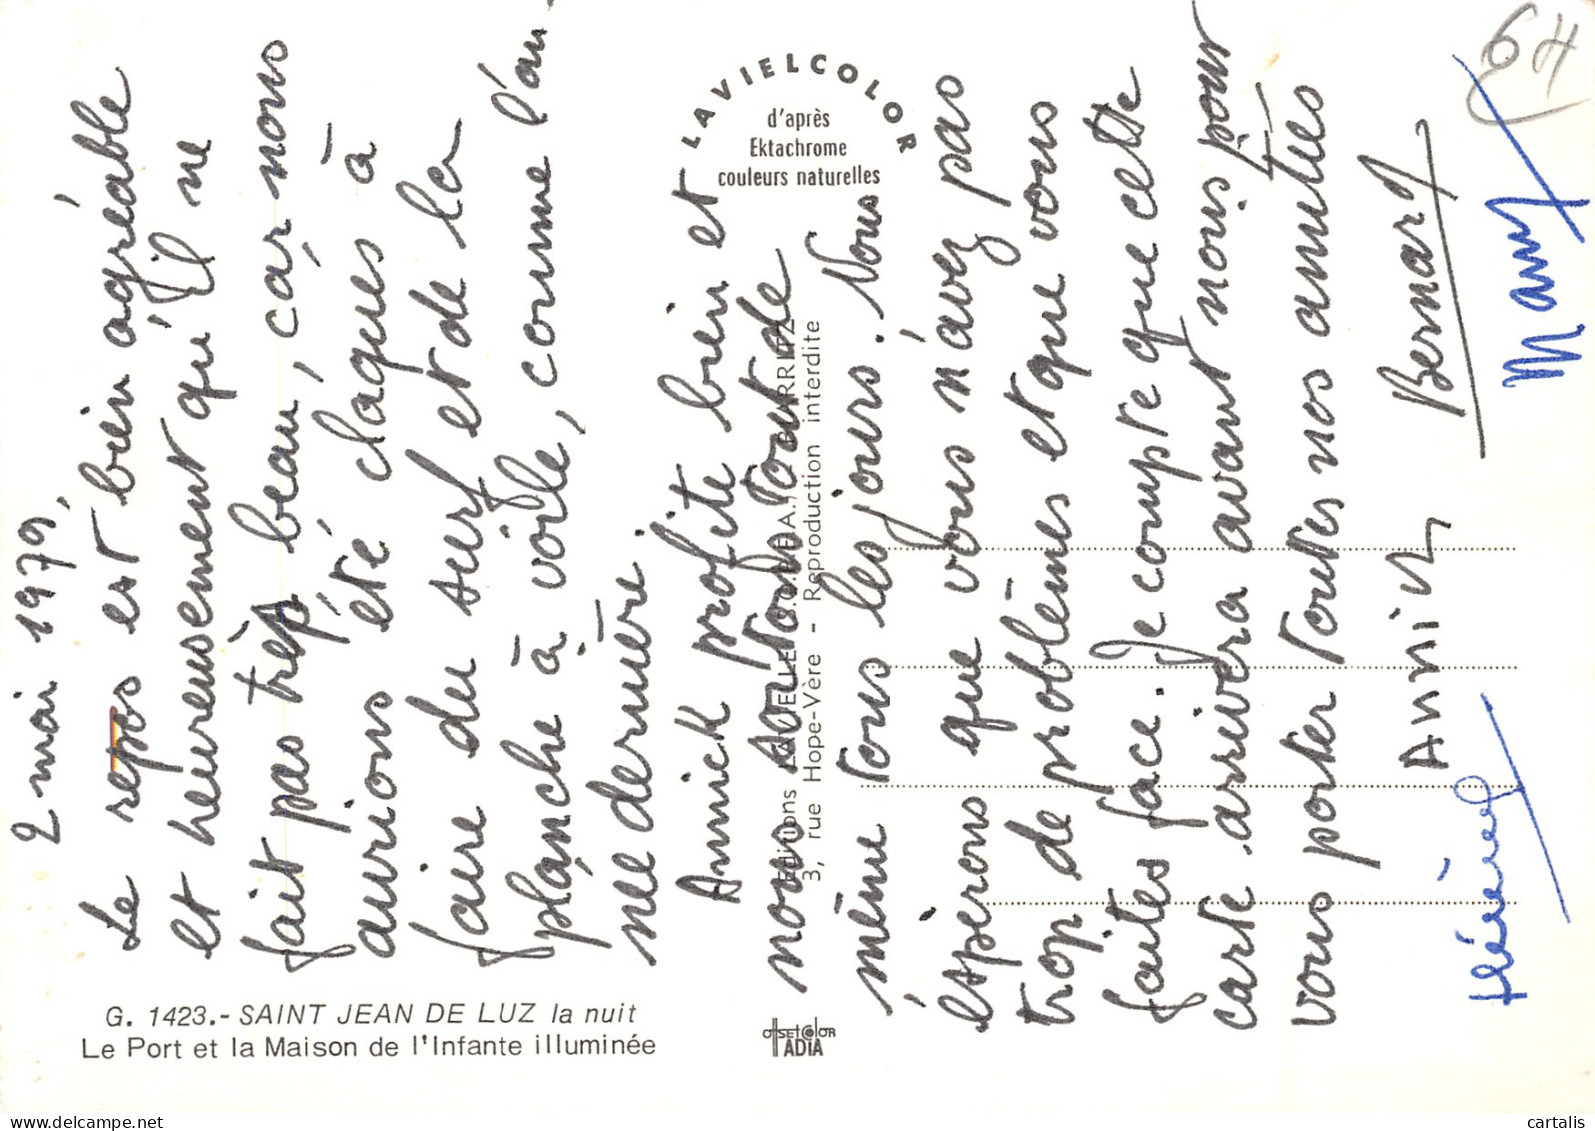 2 mai 1979,
Le repos est bien agréable
et heureusement qu'il ne
fait pas très beau, car nous
aurions été claqués à
faire du surf et de la
planche à voile, comme l'an-
née dernière.
Annick profite bien et
nous sortons tout de
même tous les jours. Nous
espérons que vous n'avez pas
trop de problèmes et que vous
faites face. Je compte que cette
carte arrivera avant nous pour
vous porter toutes nos amitiés
Annick Bernard
Hélène
64
G. 1423.- SAINT JEAN DE LUZ la nuit
Le Port et la Maison de l'Infante illuminée
LAVIELCOLOR
d'après
Ektachrome
couleurs naturelles
Editions
3, rue Hope-Vère - Reproduction interdite
OFFSET COLOR
ADIA
delcampe.net
cartalis